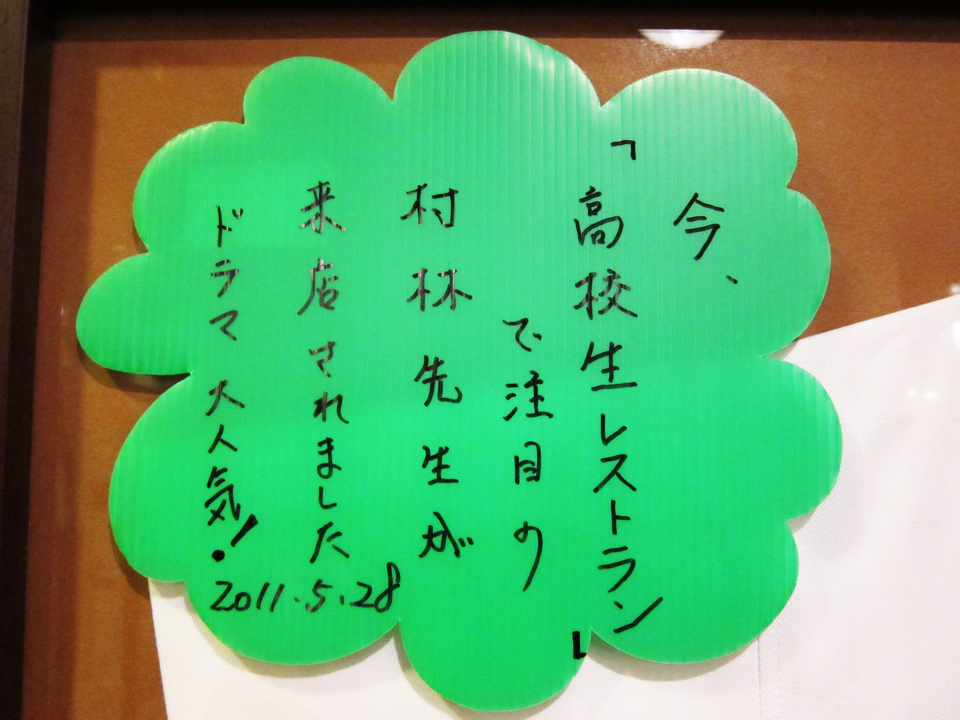 今、
「高校生レストラン」
で注目の
村林先生が
来店されました
ドラマ大人気!
2011.5.28